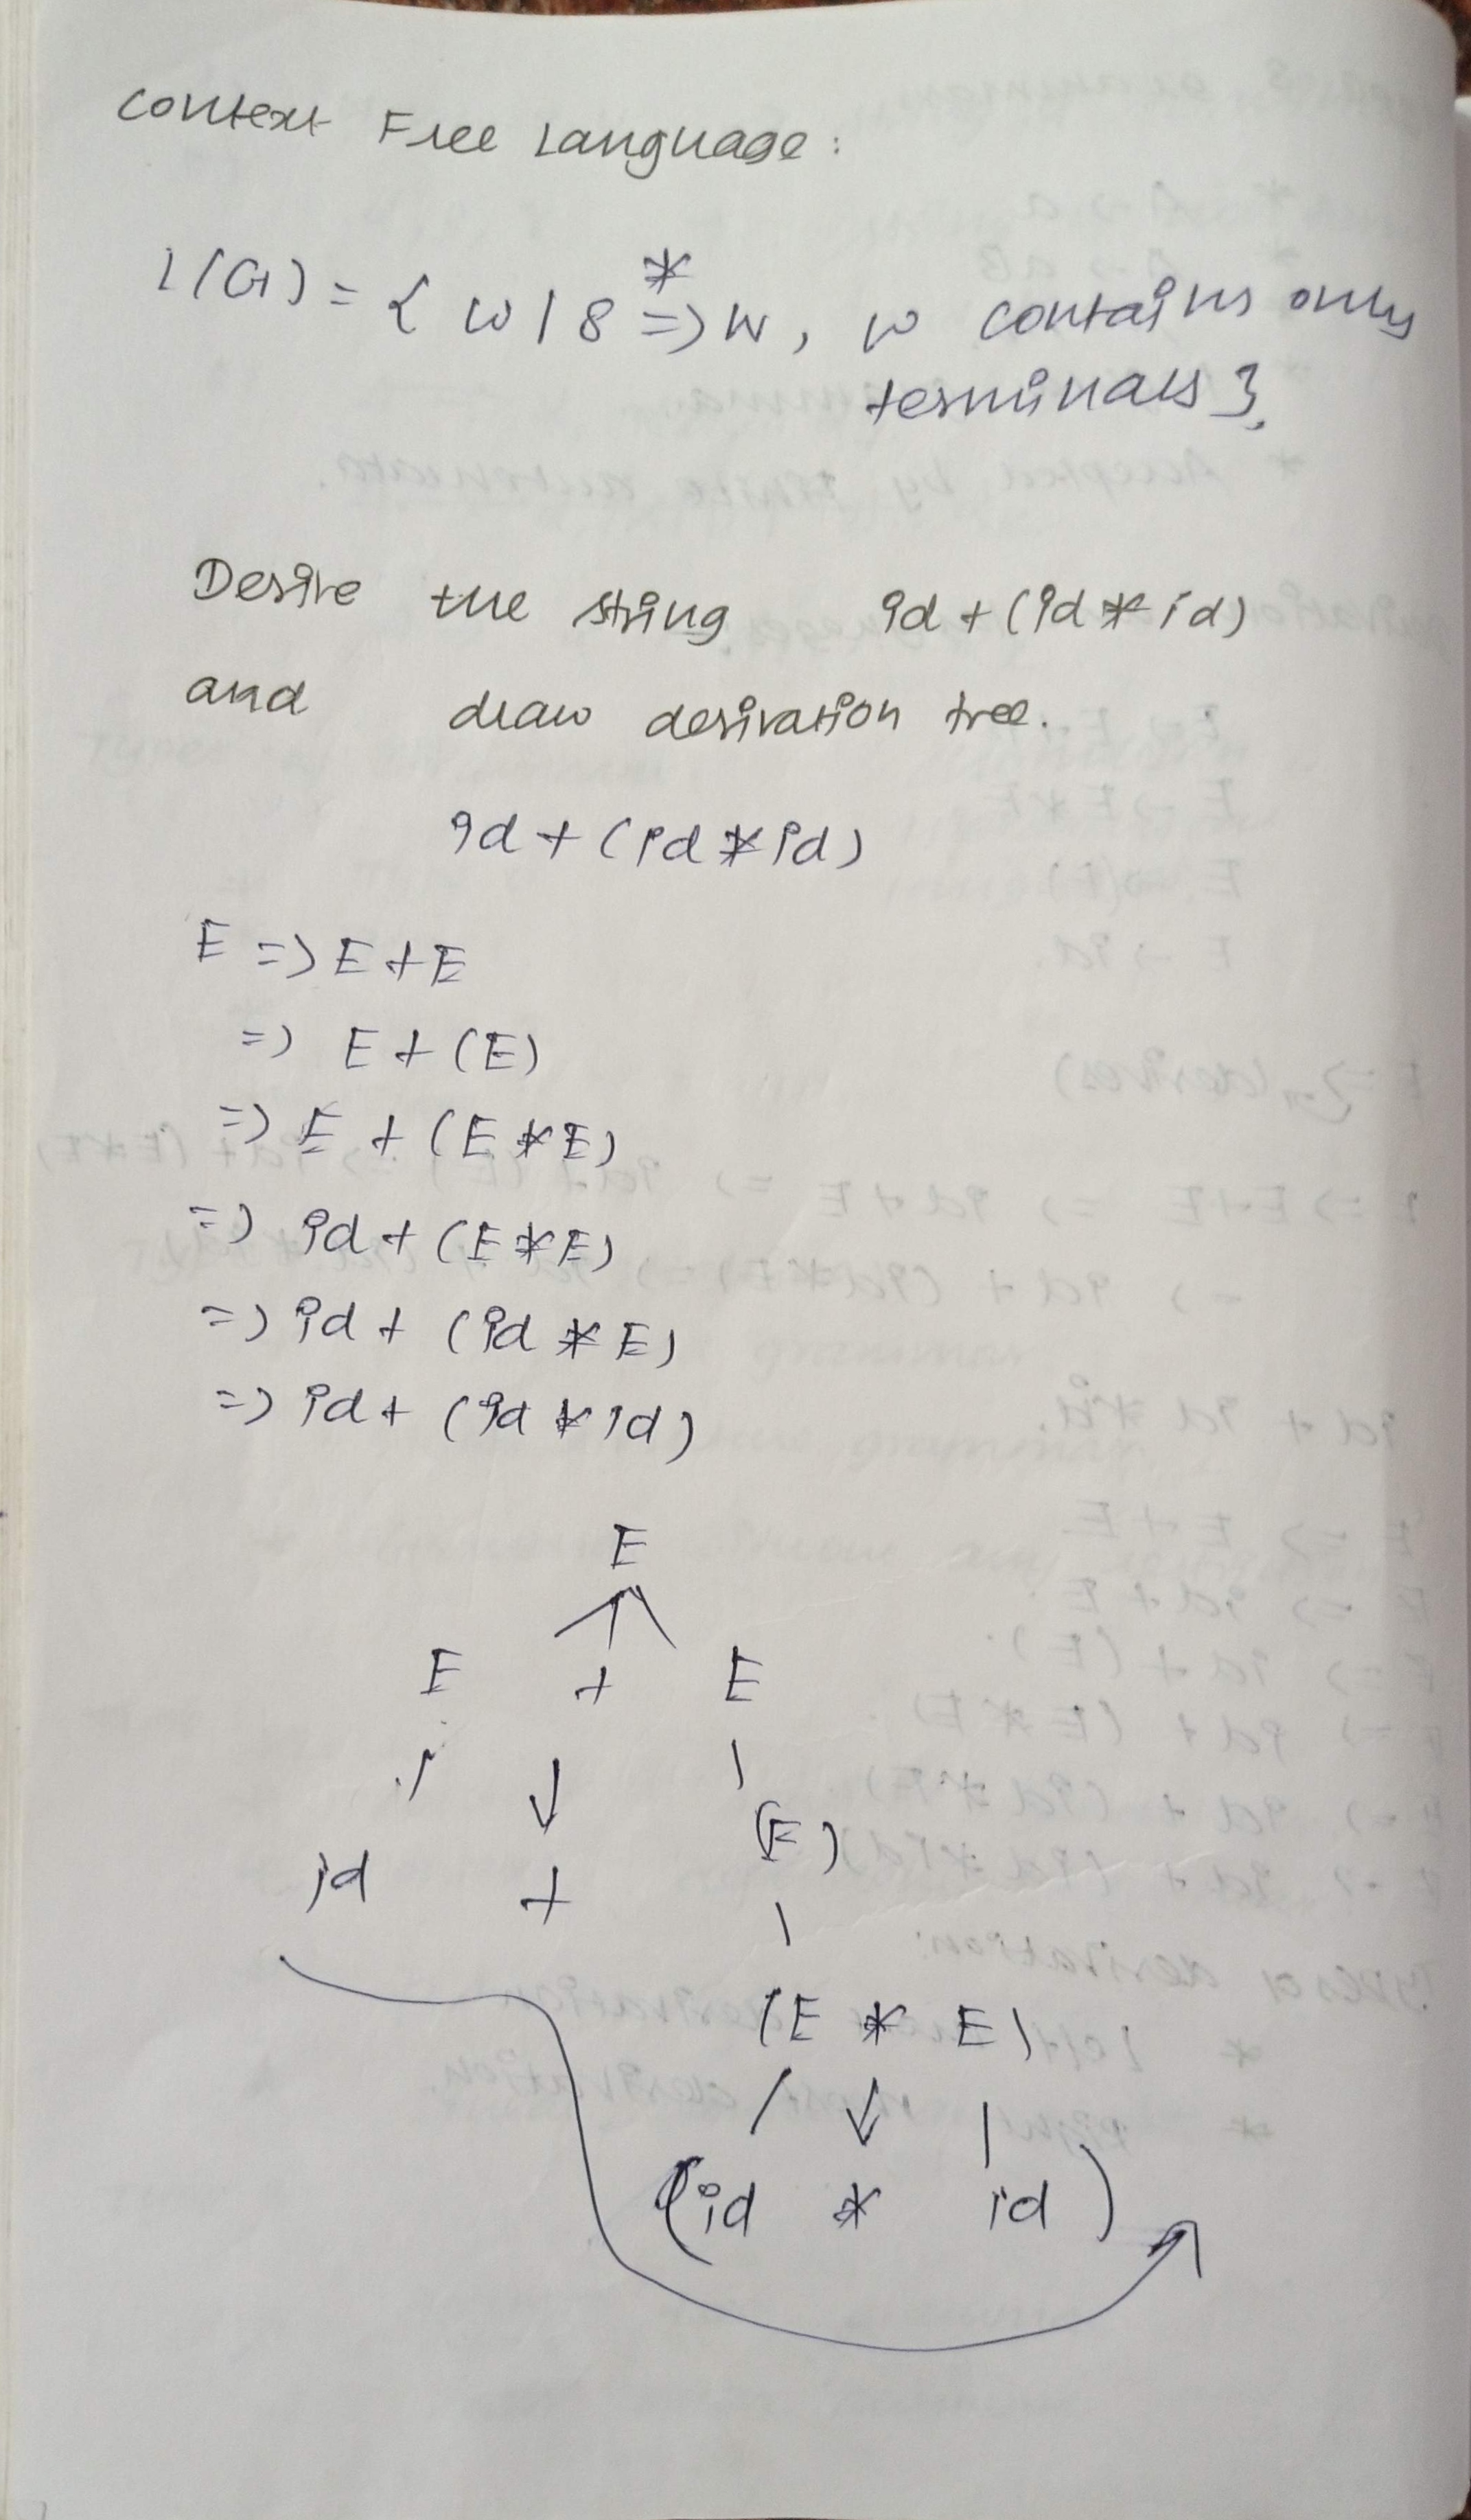 Context Free Language:
L(G) = { w | S *=> w, w contains only
terminals }.
Derive the string id + (id * id)
and draw derivation tree.
id + (id * id)
E => E + E
=> E + (E)
=> E + (E * E)
=> id + (E * E)
=> id + (id * E)
=> id + (id * id)
E
E + E
(E)
id +
(E * E)
(id * id)